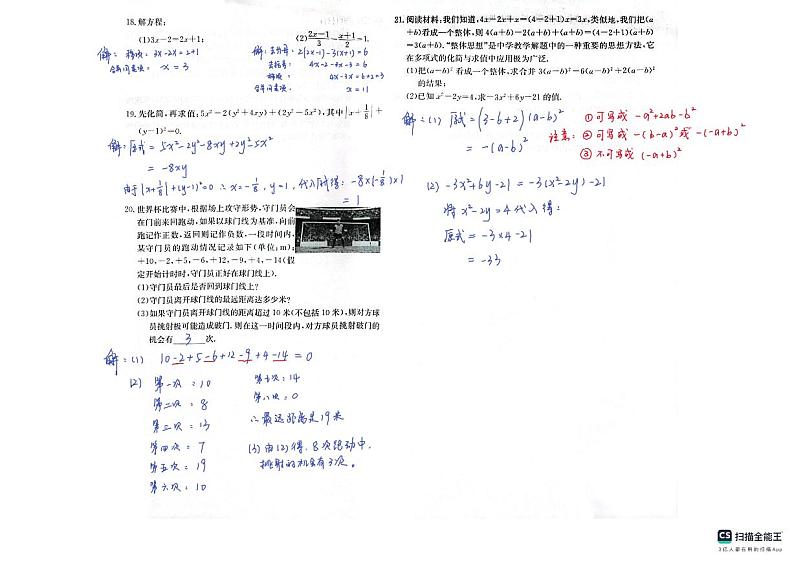 18.解方程:
(1)3x-2=2x+1;
(2)\frac{2x-1}{3}-\frac{x+1}{2}=1.
解: 移项: 3x-2x=2+1
合并同类项: x=3
解: 去分母: 2(2x-1)-3(x+1)=6
去括号: 4x-2-3x-3=6
移项: 4x-3x=6+2+3
合并同类项: x=11
19.先化简,再求值:5x²-2(y²+4xy)+(2y²-5x²),其中|x+\frac{1}{8}|+
(y-1)²=0.
解: 原式= 5x²-2y²-8xy+2y²-5x²
= -8xy
由于|x+\frac{1}{8}|+(y-1)²=0 ∴ x=-\frac{1}{8}, y=1,代入原式得: -8×(-\frac{1}{8})×1
= 1
20.世界杯比赛中,根据场上攻守形势,守门员会
在门前来回跑动,如果以球门线为基准,向前
跑记作正数,返回则记作负数,一段时间内,
某守门员的跑动情况记录如下(单位:m):
+10,-2,+5,-6,+12,-9,+4,-14(假
定开始计时时,守门员正好在球门线上).
(1)守门员最后是否回到球门线上?
(2)守门员离开球门线的最远距离达多少米?
(3)如果守门员离开球门线的距离超过10米(不包括10米),则对方球
员挑射极可能造成破门.则在这一时间段内,对方球员挑射破门的
机会有 3 次.
解: (1) 10-2+5-6+12-9+4-14=0
(2) 第一次: 10
第二次: 8
第三次: 13
第四次: 7
第五次: 19
第六次: 10
第七次: 14
第八次: 0
∴最远距离是19米
(3) 由(2)得, 8次跑动中,
挑射的机会有3次。
21.阅读材料:我们知道,4x-2x+x=(4-2+1)x=3x,类似地,我们把(a
+b)看成一个整体,则4(a+b)-2(a+b)+(a+b)=(4-2+1)(a+b)
=3(a+b).“整体思想”是中学教学解题中的一种重要的思想方法,它
在多项式的化简与求值中应用极为广泛.
(1)把(a-b)²看成一个整体,求合并3(a-b)²-6(a-b)²+2(a-b)²
的结果;
(2)已知x²-2y=4,求-3x²+6y-21的值.
解: (1) 原式=(3-6+2)(a-b)²
= -(a-b)²
注意: ①可写成 -a²+2ab-b²
②可写成 -(b-a)² 或 -(-a+b)²
③不可写成 (-a+b)²
(2) -3x²+6y-21 = -3(x²-2y)-21
将x²-2y=4代入得:
原式= -3×4-21
= -33
CS 扫描全能王
3亿人都在用的扫描App